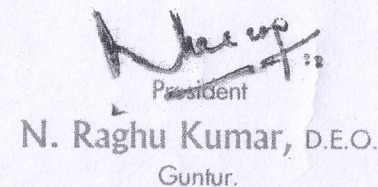 President
N. Raghu Kumar, D.E.O.
Guntur.